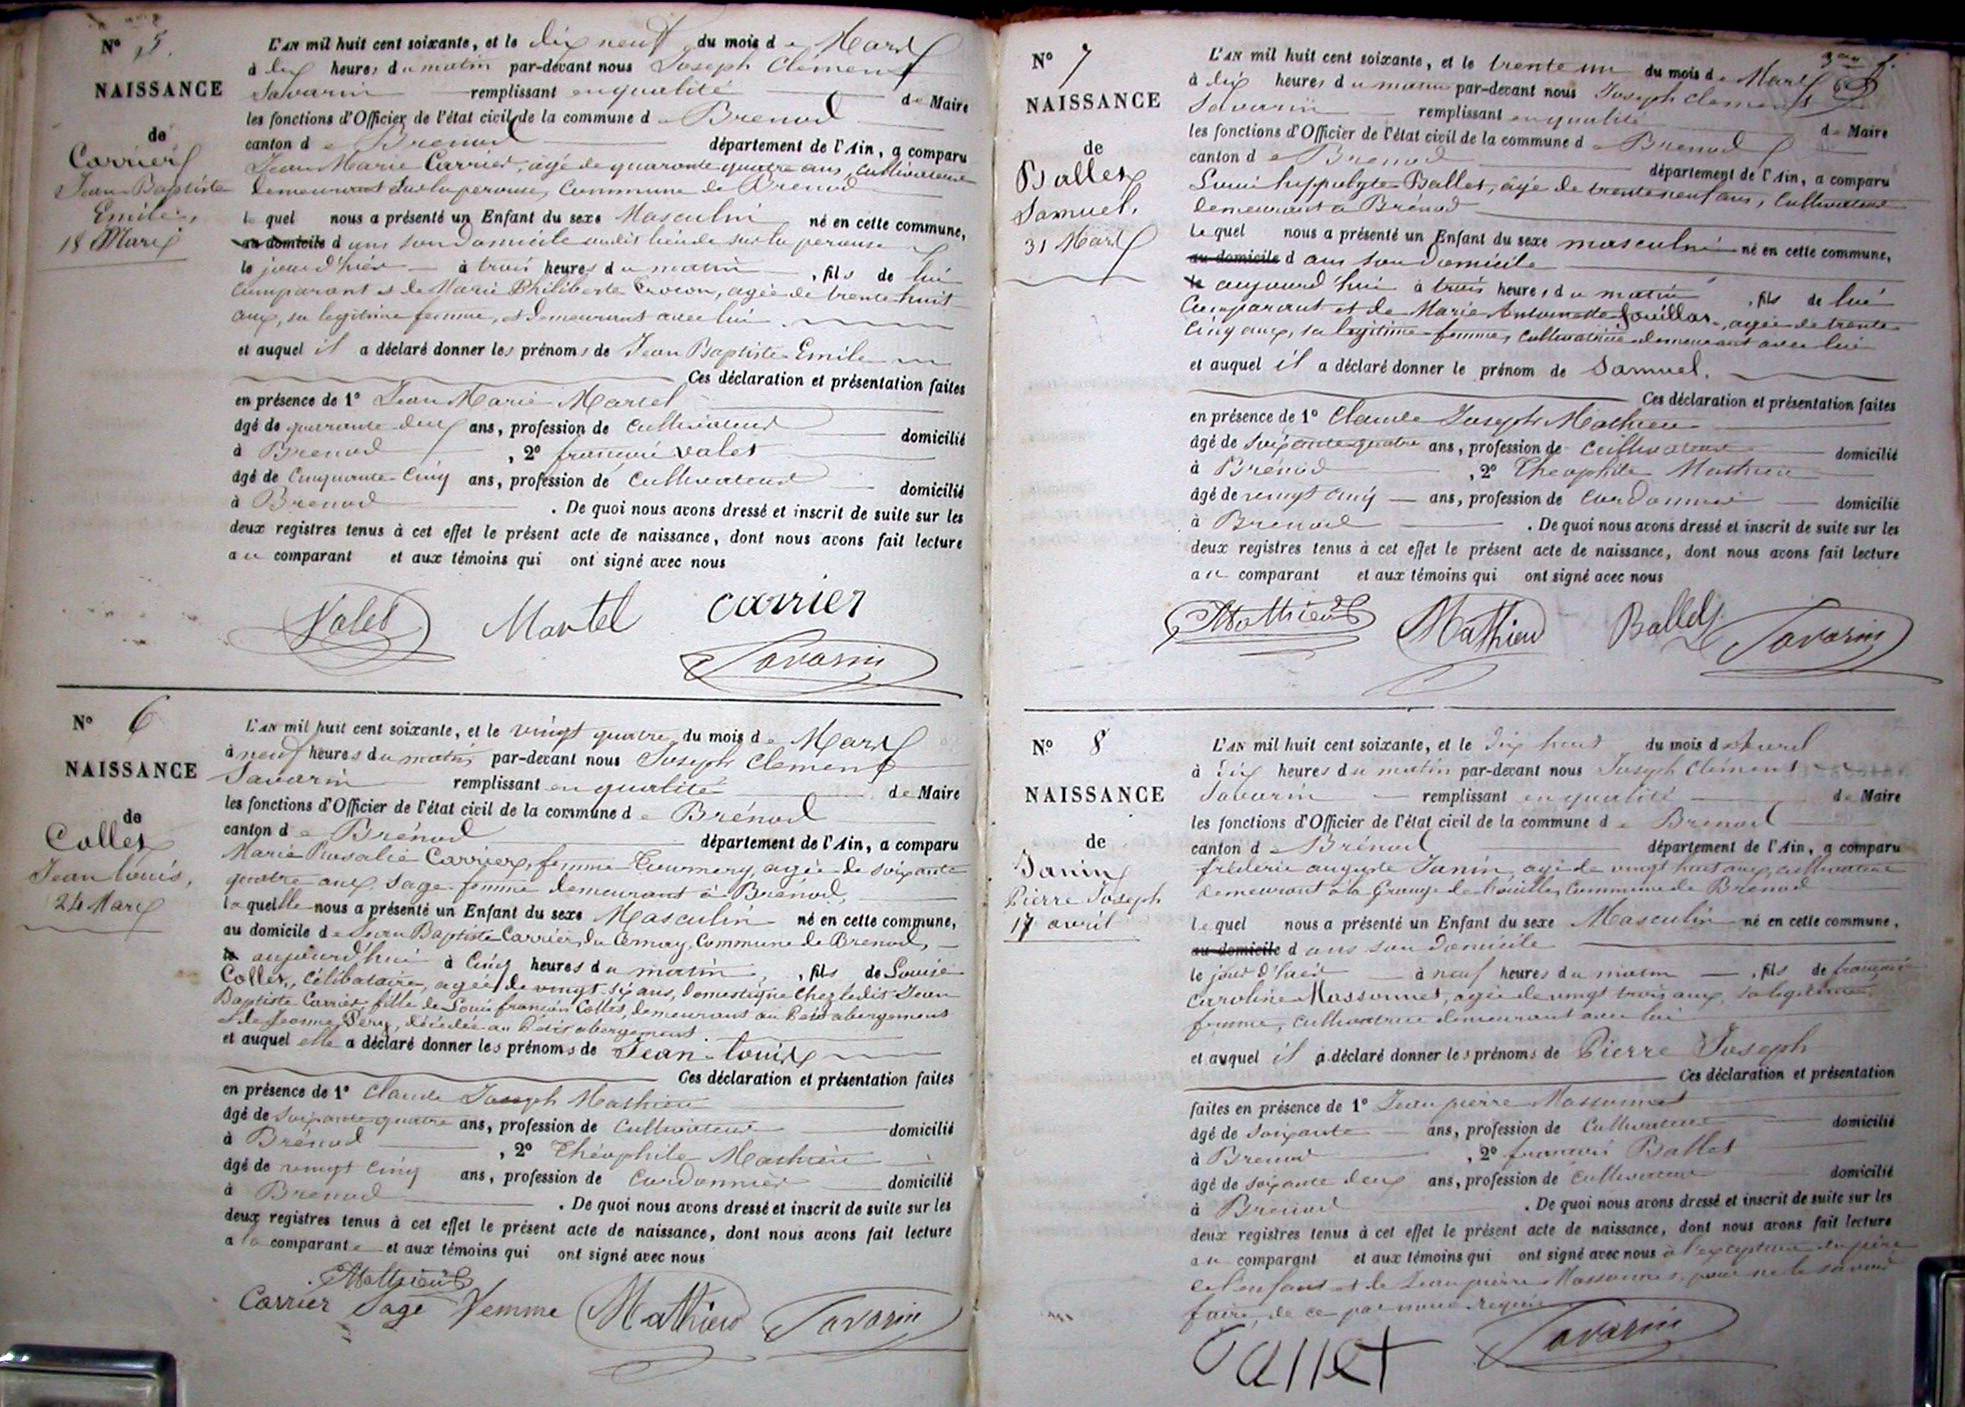 N° 5.
NAISSANCE
de
Carrier
Jean Baptiste
Emile,
18 Mars
L'AN mil huit cent soixante, et le dix neuf du mois de Mars
à dix heures du matin par-devant nous Joseph Clément
Savarin remplissant en qualité de Maire
les fonctions d'Officier de l'état civil de la commune de Brenod
canton de Brenod département de l'Ain, a comparu
Jean Marie Carrier, agé de quarante quatre ans, cultivateur
demeurant sur la perouse, Commune de Brenod
le quel nous a présenté un Enfant du sexe Masculin né en cette commune,
au domicile dans son domicile audit lieu de sur la perouse
le jour d'hier à trois heures du matin, fils de lui
comparant et de Marie Philiberte Crocon, agée de trente huit
ans, sa legitime femme, et demeurant avec lui
et auquel il a déclaré donner les prénoms de Jean Baptiste Emile
Ces déclaration et présentation faites
en présence de 1° Jean Marie Martel
âgé de quarante deux ans, profession de Cultivateur domicilié
à Brenod, 2° françois Valet
âgé de Cinquante Cinq ans, profession de Cultivateur domicilié
à Brenod. De quoi nous avons dressé et inscrit de suite sur les
deux registres tenus à cet effet le présent acte de naissance, dont nous avons fait lecture
au comparant et aux témoins qui ont signé avec nous
Valet Martel Carrier
Savarin
N° 6
NAISSANCE
de
Collet
Jean Louis,
24 Mars
L'AN mil huit cent soixante, et le vingt quatre du mois de Mars
à neuf heures du matin par-devant nous Joseph Clement
Savarin remplissant en qualité de Maire
les fonctions d'Officier de l'état civil de la commune de Brénod
canton de Brénod département de l'Ain, a comparu
Marie Rosalie Carrier, femme Tournery, agée de soixante
quatre ans, sage femme demeurant à Brenod,
la quelle nous a présenté un Enfant du sexe Masculin né en cette commune,
au domicile de Jean Baptiste Carrier, du Cernay, Commune de Brenod,
le aujourd'hui à Cinq heures du matin, fils de Louise
Collet, célibataire, agée de vingt six ans, domestique chez ledit Jean
Baptiste Carrier fille de Louis françois Collet, demeurant au Petit abergement
et de Jeanne Péry, décédée au Petit abergement
et auquel elle a déclaré donner les prénoms de Jean-Louis
Ces déclaration et présentation faites
en présence de 1° Claude Joseph Mathieu
âgé de soixante quatre ans, profession de Cultivateur domicilié
à Brénod, 2° Théophile Mathieu
âgé de vingt cinq ans, profession de Cordonnier domicilié
à Brenod. De quoi nous avons dressé et inscrit de suite sur les
deux registres tenus à cet effet le présent acte de naissance, dont nous avons fait lecture
a la comparante et aux témoins qui ont signé avec nous
Mathieu
Carrier Sage Femme Mathieu Savarin
N° 7
NAISSANCE
de
Ballet
Samuel.
31 Mars
L'AN mil huit cent soixante, et le trente un du mois de Mars
à dix heures du matin par-devant nous Joseph Clement
Savarin remplissant en qualité de Maire
les fonctions d'Officier de l'état civil de la commune de Brenod
canton de Brenod département de l'Ain, a comparu
Louis hyppolyte Ballet, âgé de trente neuf ans, Cultivateur
demeurant à Brénod
le quel nous a présenté un Enfant du sexe masculin né en cette commune,
au domicile dans son domicile
le aujourd'hui à trois heures du matin, fils de lui
Comparant et de Marie Antoinette Jouillar, agée de trente
Cinq ans, sa legitime femme, cultivatrice demeurant avec lui
et auquel il a déclaré donner le prénom de Samuel.
Ces déclaration et présentation faites
en présence de 1° Claude Joseph Mathieu
âgé de soixante quatre ans, profession de Cultivateur domicilié
à Brénod, 2° Théophile Mathieu
âgé de vingt cinq ans, profession de Cordonnier domicilié
à Brenod. De quoi nous avons dressé et inscrit de suite sur les
deux registres tenus à cet effet le présent acte de naissance, dont nous avons fait lecture
au comparant et aux témoins qui ont signé avec nous
Mathieu Mathieu Ballet Savarin
N° 8
NAISSANCE
de
Janin
Pierre Joseph
17 avril
L'AN mil huit cent soixante, et le dix huit du mois d'Avril
à dix heures du matin par-devant nous Joseph Clément
Savarin remplissant en qualité de Maire
les fonctions d'Officier de l'état civil de la commune de Brenod
canton de Brénod département de l'Ain, a comparu
frédéric auguste Janin, agé de vingt huit ans, cultivateur
demeurant à la Grange Commune de Brenod
le quel nous a présenté un Enfant du sexe Masculin né en cette commune,
au domicile dans son domicile
le jour d'hier à neuf heures du matin, fils de françoise
Caroline Massonnet, agée de vingt trois ans, sa legitime
femme, cultivatrice demeurant avec lui
et auquel il a déclaré donner les prénoms de Pierre Joseph
Ces déclaration et présentation
faites en présence de 1° Jean pierre Massonnet
âgé de soixante ans, profession de Cultivateur domicilié
à Brenod, 2° françois Ballet
âgé de soixante deux ans, profession de Cultivateur domicilié
à Brenod. De quoi nous avons dressé et inscrit de suite sur les
deux registres tenus à cet effet le présent acte de naissance, dont nous avons fait lecture
au comparant et aux témoins qui ont signé avec nous à l'exception du père
de l'enfant et de Jean pierre Massonnet, pour ne le savoir
faire, de ce par nous requis
Ballet Savarin